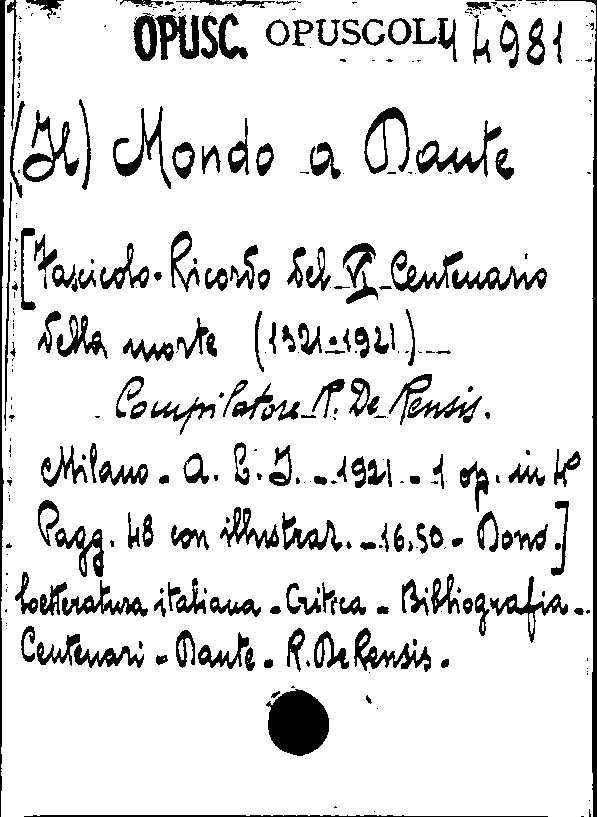 OPUSC. OPUSCOLI 44981
(Il) Mondo a Dante
[Fascicolo-Ricordo del VI Centenario
della morte (1321-1921)
Compilatore R. De Rensis.
Milano - A. L. I. - 1921 - 1 op. in 4°
Pagg. 48 con illustraz. - 16.50 - Dono.]
Letteratura italiana - Critica - Bibliografia -
Centenari - Dante - R. De Rensis.